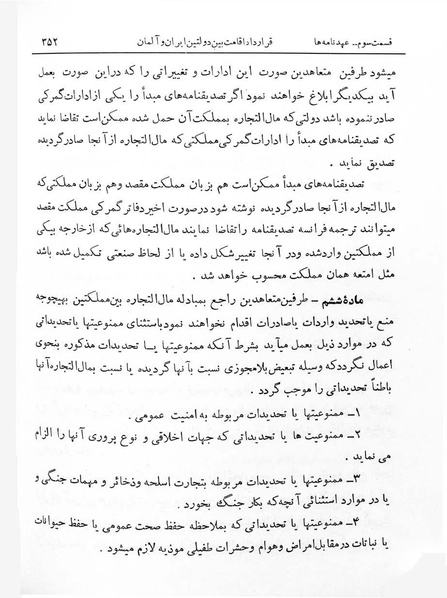 قسمت سوم ــ عهدنامه‌ها
قرارداد اقامت بین دولتین ایران و آلمان
۳۵۲
میشود طرفین متعاهدین صورت این ادارات و تغییراتی را که در این صورت بعمل
آید بیکدیگر ابلاغ خواهند نمود اگر تصدیقنامه‌های مبدأ را یکی از ادارات گمرکی
صادر ننموده باشد دولتی که مال‌التجاره بمملکت آن حمل شده ممکن است تقاضا نماید
که تصدیقنامه‌های مبدأ را ادارات گمرکی مملکتی که مال‌التجاره از آنجا صادر گردیده
تصدیق نماید .
تصدیقنامه‌های مبدأ ممکن است هم بزبان مملکت مقصد وهم بزبان مملکتی که
مال‌التجاره از آنجا صادر گردیده نوشته شود در صورت اخیر دفاتر گمرکی مملکت مقصد
میتوانند ترجمه فرانسه تصدیقنامه را تقاضا نمایند مال‌التجاره‌هائی که از خارجه بیکی
از مملکتین وارد شده ودر آنجا تغییر شکل داده یا از لحاظ صنعتی تکمیل شده باشد
مثل امتعه همان مملکت محسوب خواهد شد .
مادهٔ ششم ــ طرفین متعاهدین راجع بمبادله مال‌التجاره بین مملکتین بهیچوجه
منع یا تحدید واردات یا صادرات اقدام نخواهند نمود باستثنای ممنوعیتها یا تحدیداتی
که در موارد ذیل بعمل میآید بشرط آنکه ممنوعیتها یــا تحدیدات مذکوره بنحوی
اعمال نگردد که وسیله تبعیض بلامجوزی نسبت بآنها گردیده یا نسبت بمال‌التجاره آنها
باطناً تحدیداتی را موجب گردد .
۱ــ ممنوعیتها یا تحدیدات مربوطه به امنیت عمومی .
۲ــ ممنوعیت ها یا تحدیداتی که جهات اخلاقی و نوع پروری آنها را الزام
می نماید .
۳ــ ممنوعیتها یا تحدیدات مربوطه بتجارت اسلحه وذخائر و مهمات جنگی و
یا در موارد استثنائی آنچه که بکار جنگ بخورد .
۴ــ ممنوعیتها یا تحدیداتی که بملاحظه حفظ صحت عمومی یا حفظ حیوانات
یا نباتات در مقابل امراض وهوام وحشرات طفیلی موذیه لازم میشود .